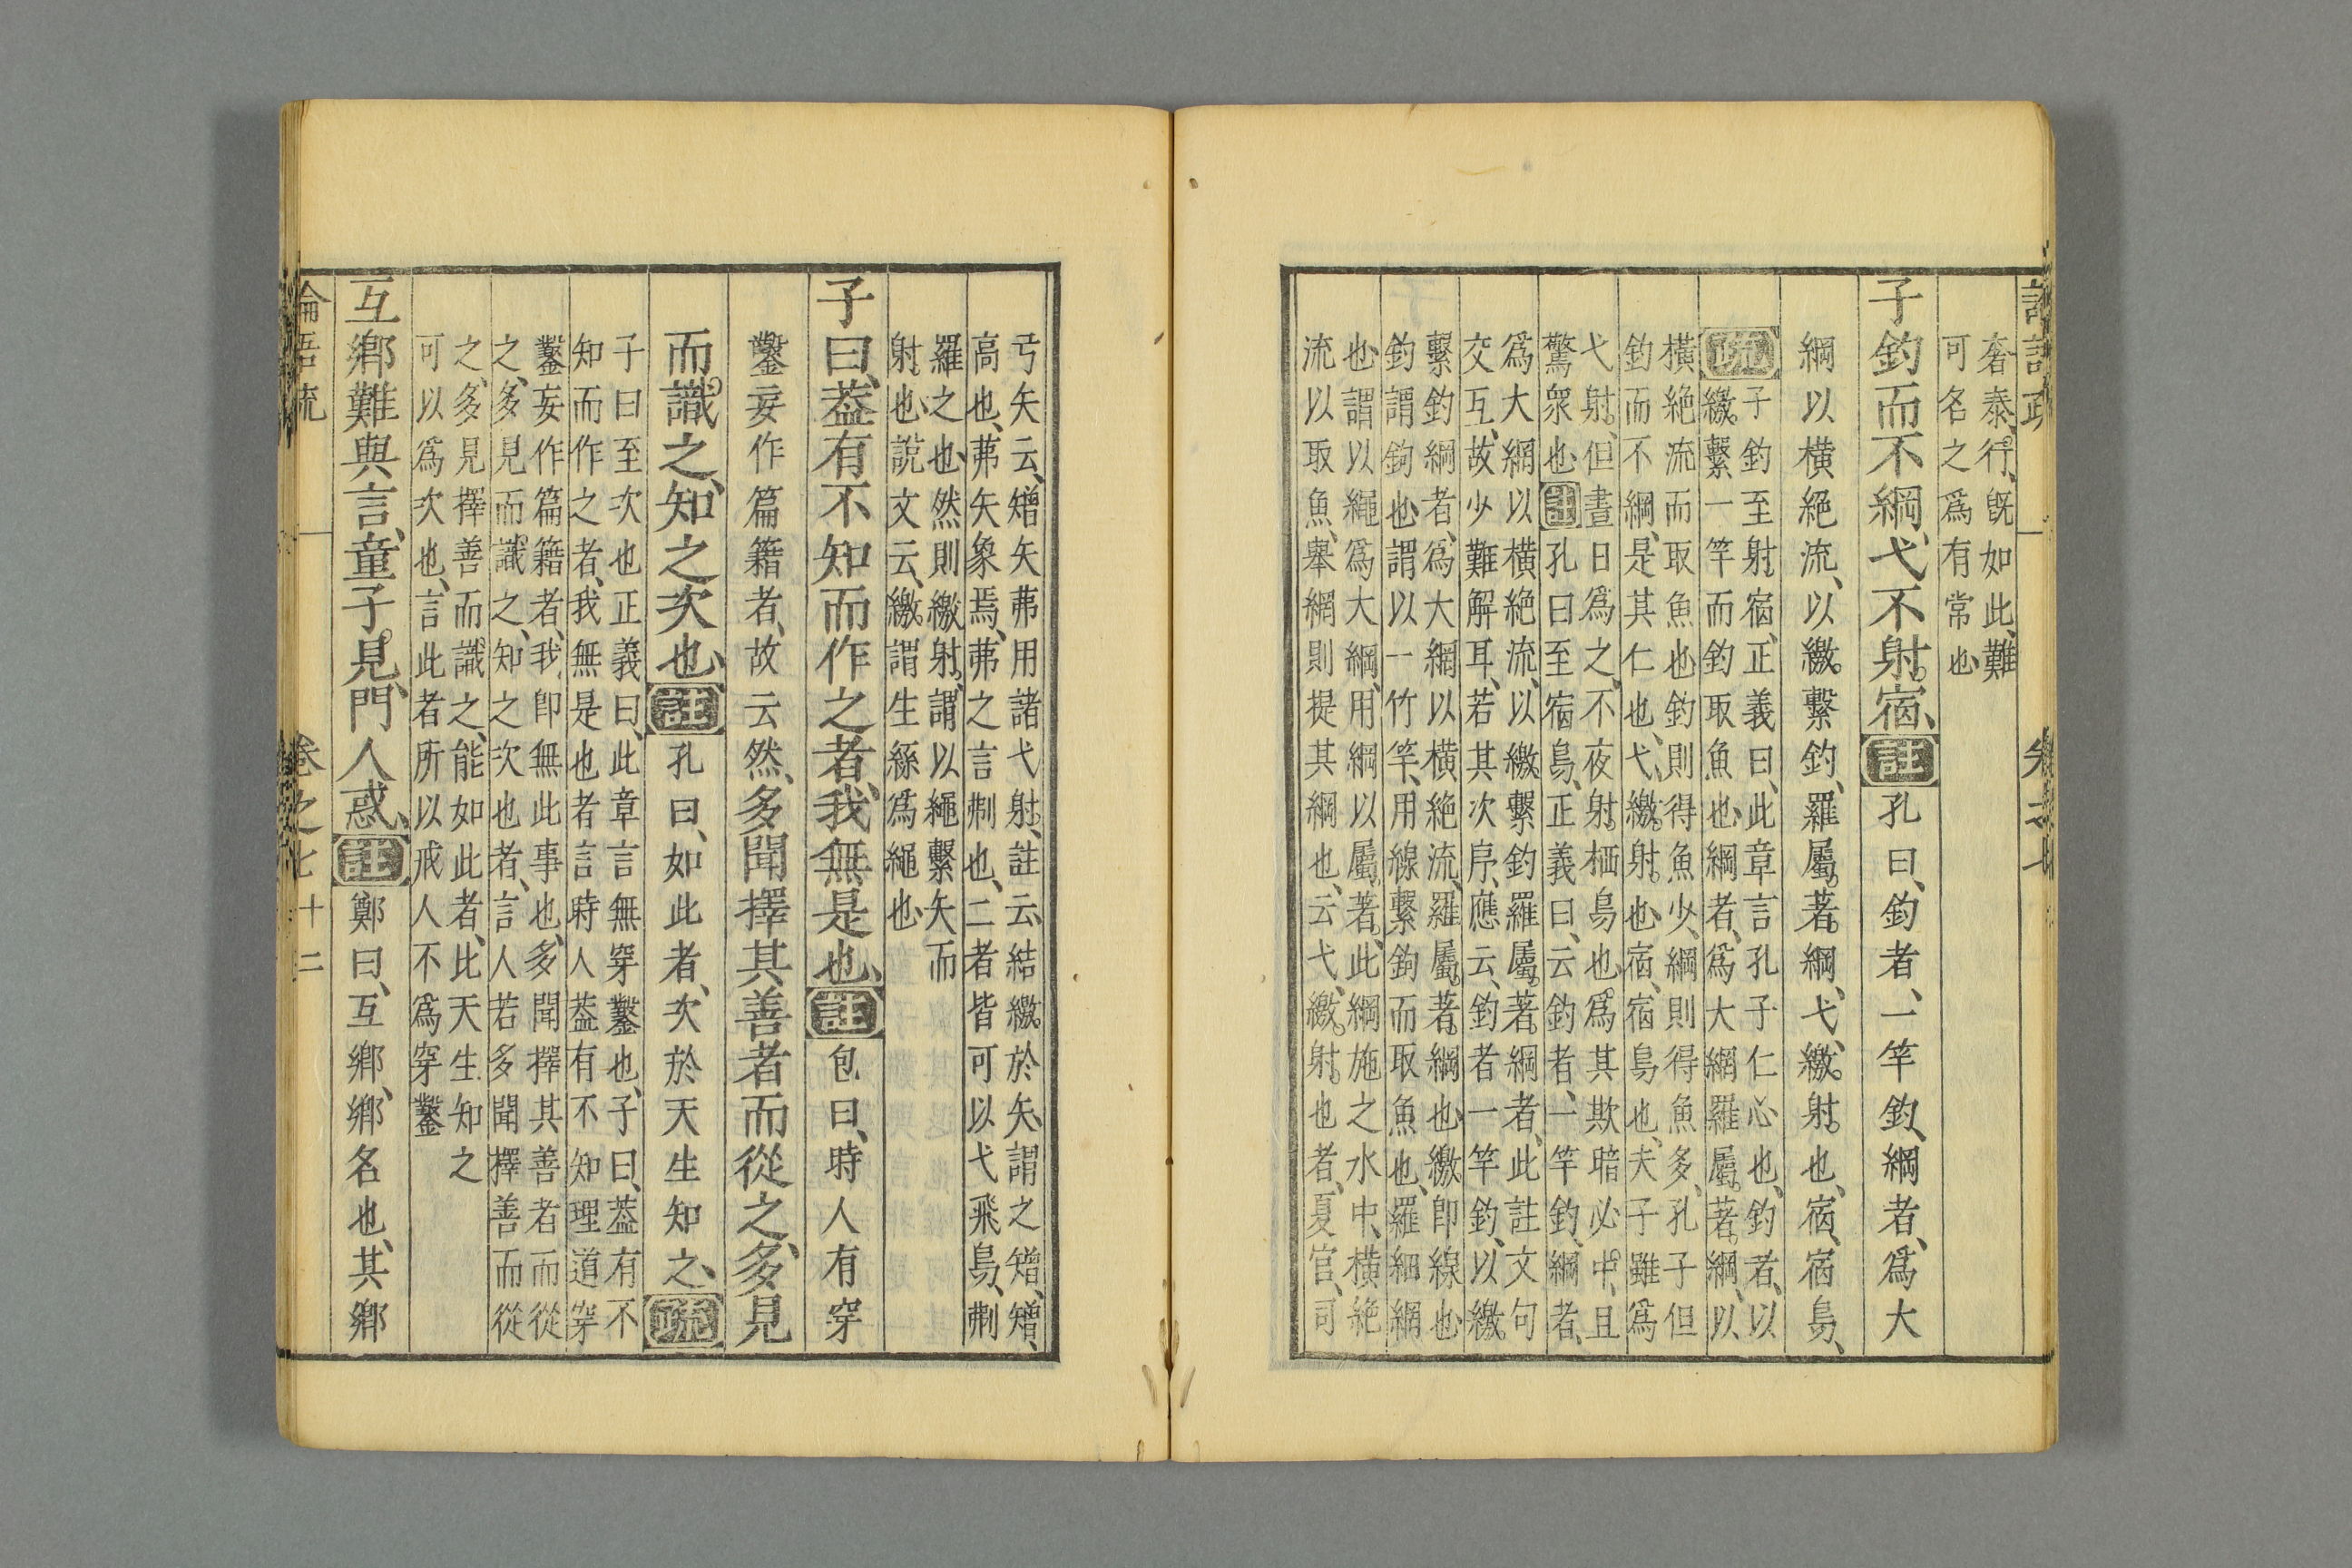 奢泰、行、旣如此、難
可名之爲有常也
子釣而不綱、弋不射宿、註孔曰、釣者、一竿釣、綱者、爲大
綱以橫絕流、以繳繫釣、羅屬著綱、弋、繳射也、宿、宿鳥、
疏子釣至射宿、正義曰、此章言孔子仁心也、釣者、以
繳繫一竿而釣取魚也、綱者、爲大網羅屬著綱、以
橫絕流而取魚也釣則得魚少、綱則得魚多、孔子但
釣而不綱、是其仁也、弋、繳射也、宿、宿鳥也、夫子雖爲
弋射、但晝日爲之、不夜射栖鳥也、爲其欺暗必中、且
驚衆也、註孔曰至宿鳥、正義曰、云釣者、一竿釣、綱者、
爲大網以橫絕流、以繳繫釣羅屬著綱者、此註文句
交互、故少難解耳、若其次序、應云、釣者一竿釣、以繳
繫釣綱者、爲大網以橫絕流、羅屬著綱也、繳即線也
釣謂鉤也、謂以一竹竿、用線繫鉤而取魚也、羅細網
也、謂以繩爲大綱、用網以屬著此綱施之水中、橫絕
流以取魚、舉網則提其綱也、云弋、繳射也者、夏官、司
弓矢云、矰矢茀用諸弋射、註云、結繳於矢、謂之矰、矰、
高也、茀矢象焉、茀之言刜也、二者皆可以弋飛鳥、刜
羅之也、然則繳射、謂以繩繫矢而
射也、說文云、繳謂生絲爲繩也
子曰、葢有不知而作之者、我無是也、註包曰、時人有穿
鑿妄作篇籍者、故云然、多聞擇其善者而從之、多見
而識之、知之次也、註孔曰、如此者、次於天生知之、疏
子曰至次也正義曰、此章言無穿鑿也、子曰、葢有不
知而作之者、我無是也者言時人葢有不知理道穿
鑿妄作篇籍者、我即無此事也、多聞擇其善者而從
之、多見而識之、知之次也者、言人若多聞擇善而從
之、多見擇善而識之、能如此者、比天生知之
可以爲次也、言此者所以戒人不爲穿鑿
互鄉難與言、童子見、門人惑、註鄭曰、互鄉、鄉名也、其鄉
論語疏 卷之七 十二